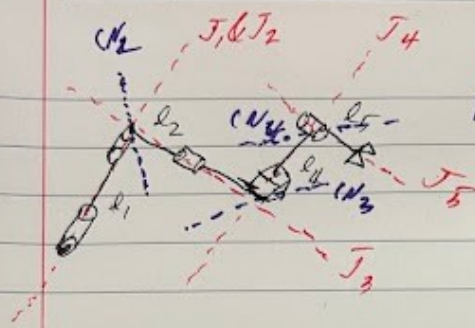 CN2
J1&J2
J4
l2
CN4
l5
l1
l4
CN3
J5
J3